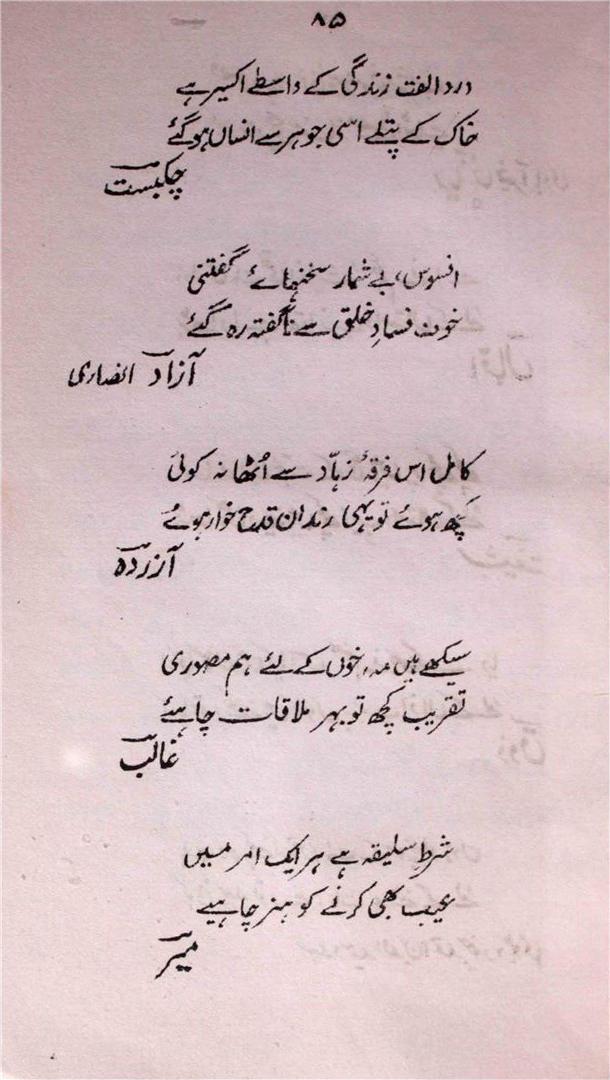 ۸۵
درد الفت زندگی کے واسطے اکسیر ہے
خاک کے پتلے اسی جوہر سے انساں ہوگئے
چکبست
افسوس، بے شمار سخنہائے گفتنی
خوف فسادِ خلق سے ناگفتہ رہ گئے
آزاد انصاری
کامل اس فرقۂ زہّاد سے اُٹھا نہ کوئی
کچھ ہوئے تو یہی رندان قدح خوار ہوئے
آزردہ
سیکھے ہیں مہ رخوں کے لئے ہم مصوری
تقریب کچھ تو بہر ملاقات چاہئے
غالب
شرط سلیقہ ہے ہر ایک امر میں
عیب بھی کرنے کو ہنر چاہیے
میر